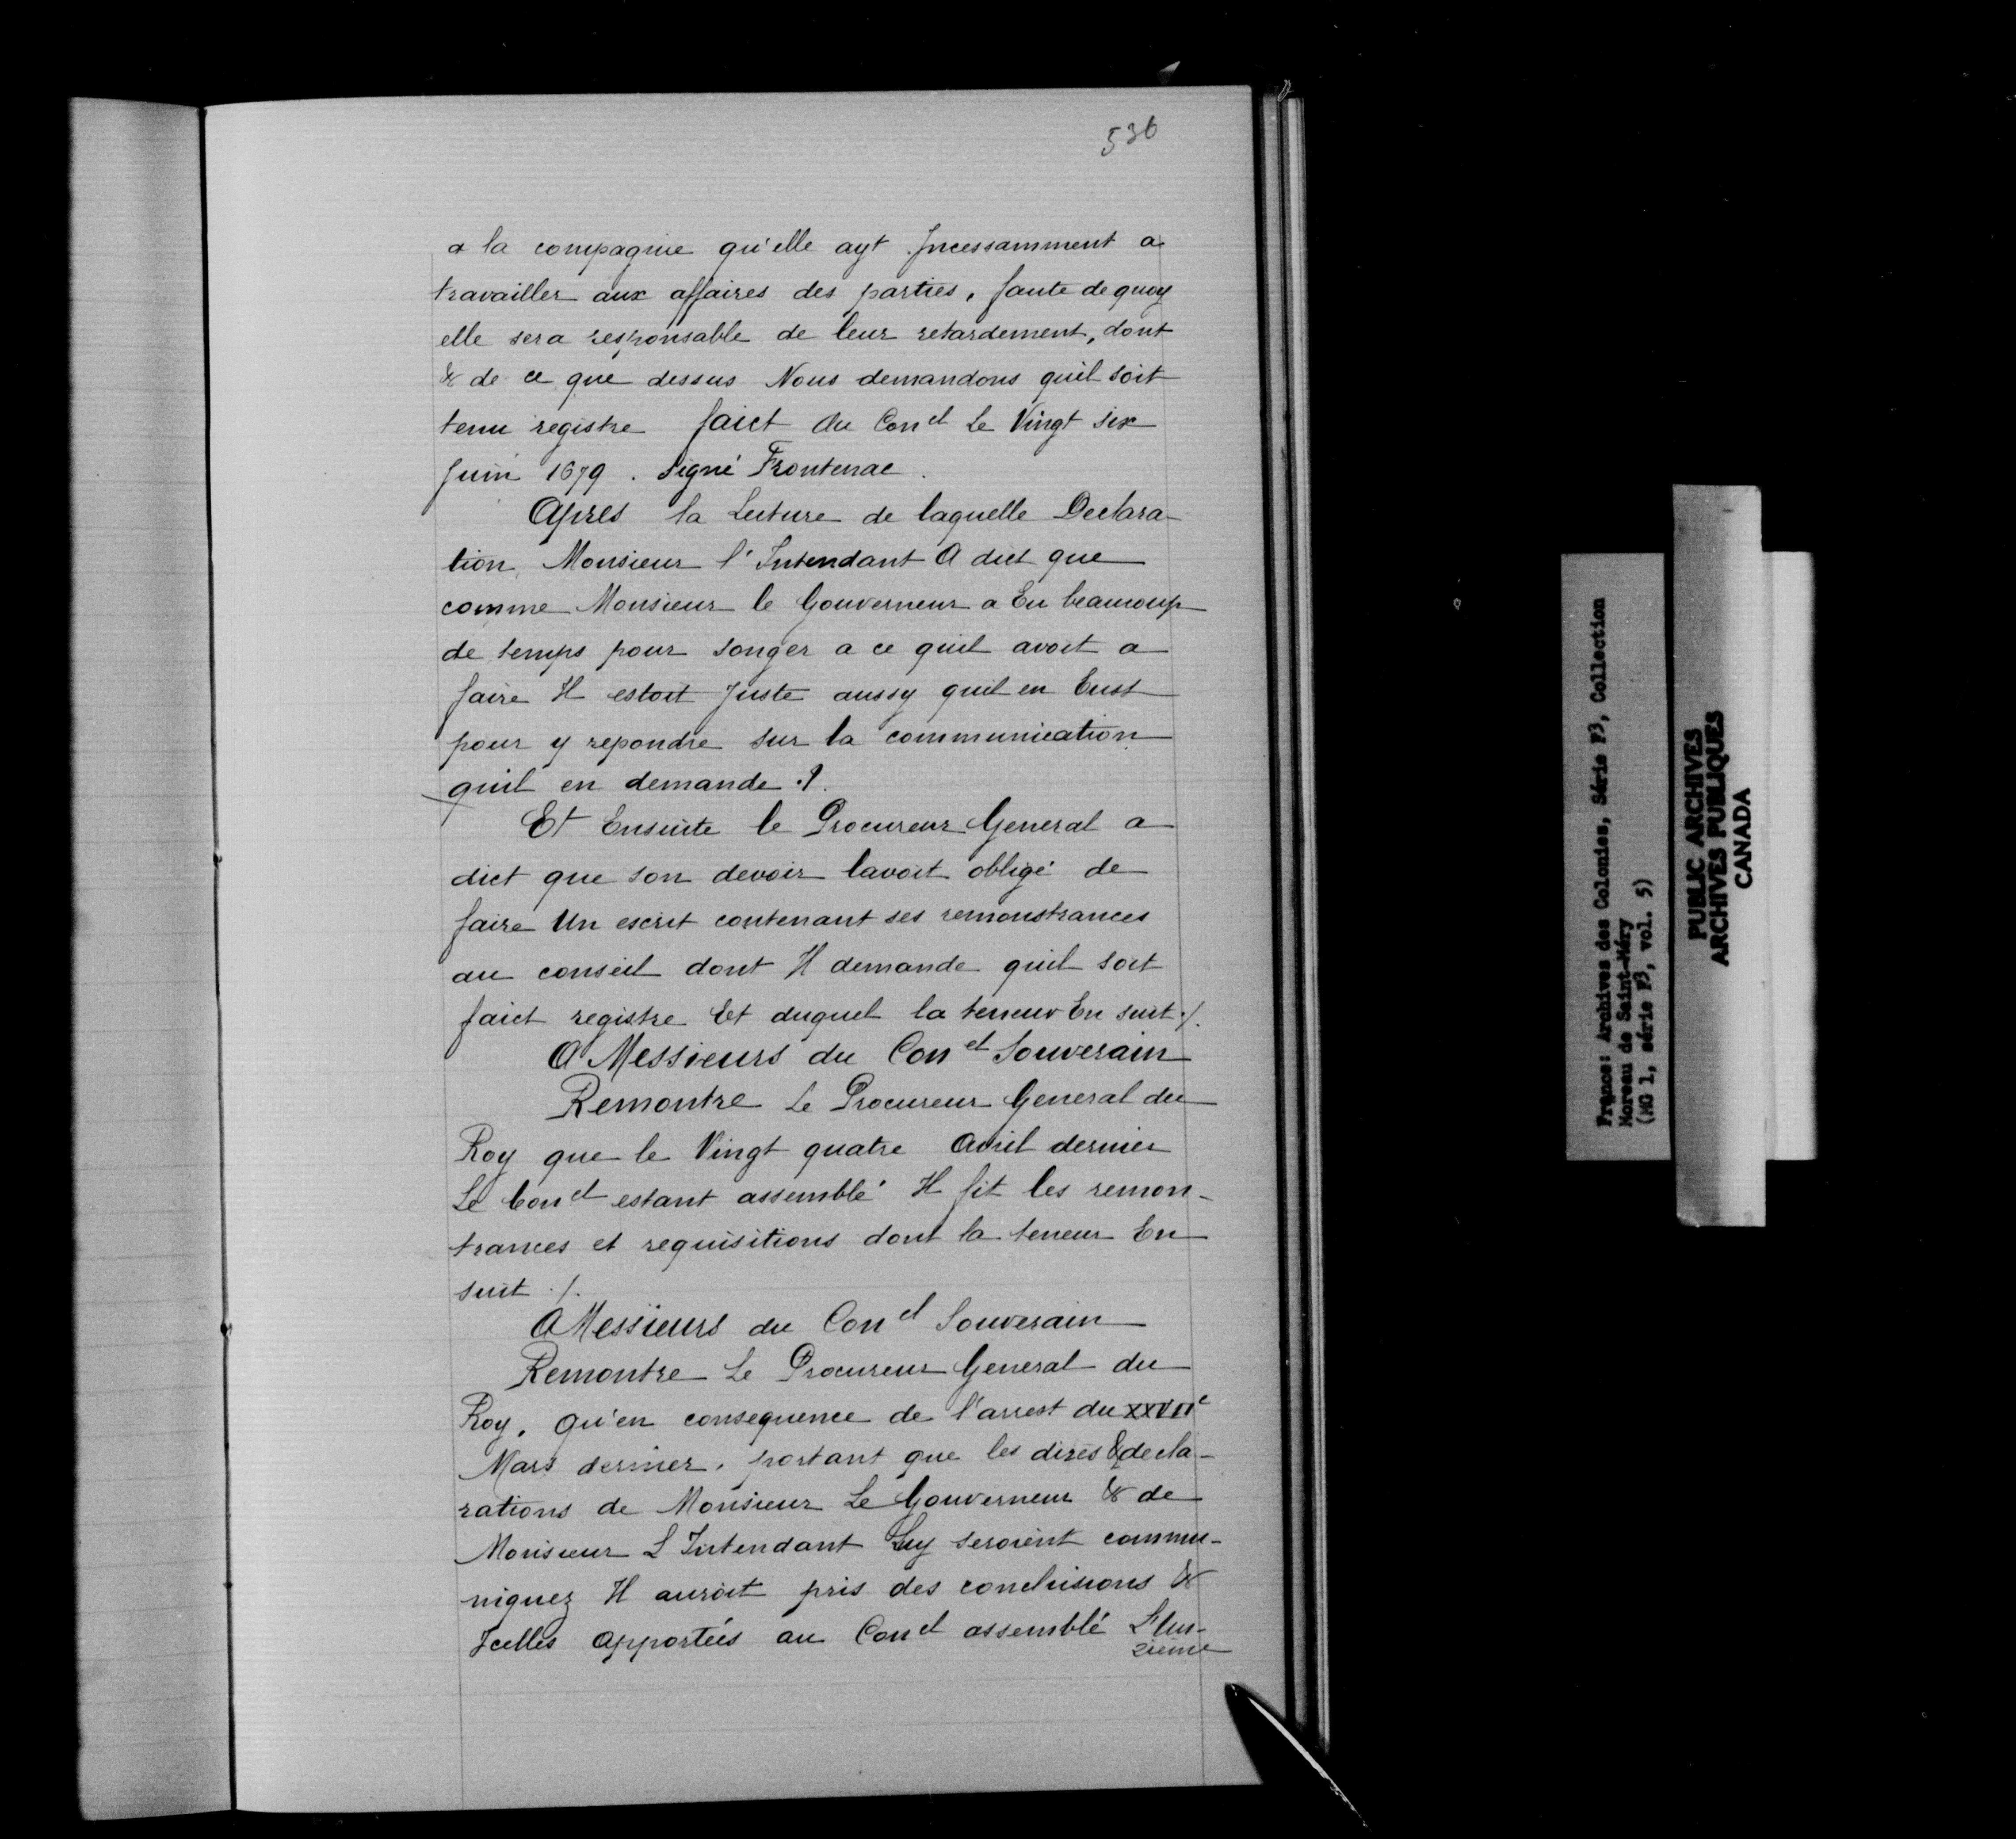 536
a la compagnie qu'elle ayt Incessamment a
travailler aux affaires des parties, faute de quoy
elle sera responsable de leur retardement, dont
& de ce que dessus Nous demandons quil soit
tenu registre faict Au Con.el Le Vingt six
Juin 1679. Signé Frontenac.
Apres la Lecture de laquelle Declara-
tion, Monsieur l'Intendant A dict que
comme Monsieur le Gouverneur a Eu beaucoup
de temps pour songer a ce quil avoit a
faire Il estoit Juste aussy quil en Eust
pour y repondre sur la communication
quil en demande ./.
Et Ensuite le Procureur General a
dict que son devoir lavoit obligé de
faire Un escrit contenant ses remonstrances
au conseil dont Il demande quil soit
faict registre Et duquel la teneur En suit ./.
A Messieurs du Con el Souverain
Remontre Le Procureur General du
Roy que le Vingt quatre Avril dernier
Le Con el estant assemblé Il fit les remon-
trances et requisitions dont la teneur En
suit ./.
A Messieurs du Con el Souverain
Remontre Le Procureur General du
Roy, qu'en consequence de l'arrest du XXVIIe
Mars dernier, portant que les dires & decla-
rations de Monsieur Le Gouverneur & de
Monsieur L'Intendant Luy seroient commu-
niquez Il auroit pris des conclusions &
Icelles apportées au Con el assemblé L'un-
zieme
France: Archives des Colonies, Série F3, Collection
Moreau de Saint-Méry
(MG 1, série F3, vol. 5)
PUBLIC ARCHIVES
ARCHIVES PUBLIQUES
CANADA